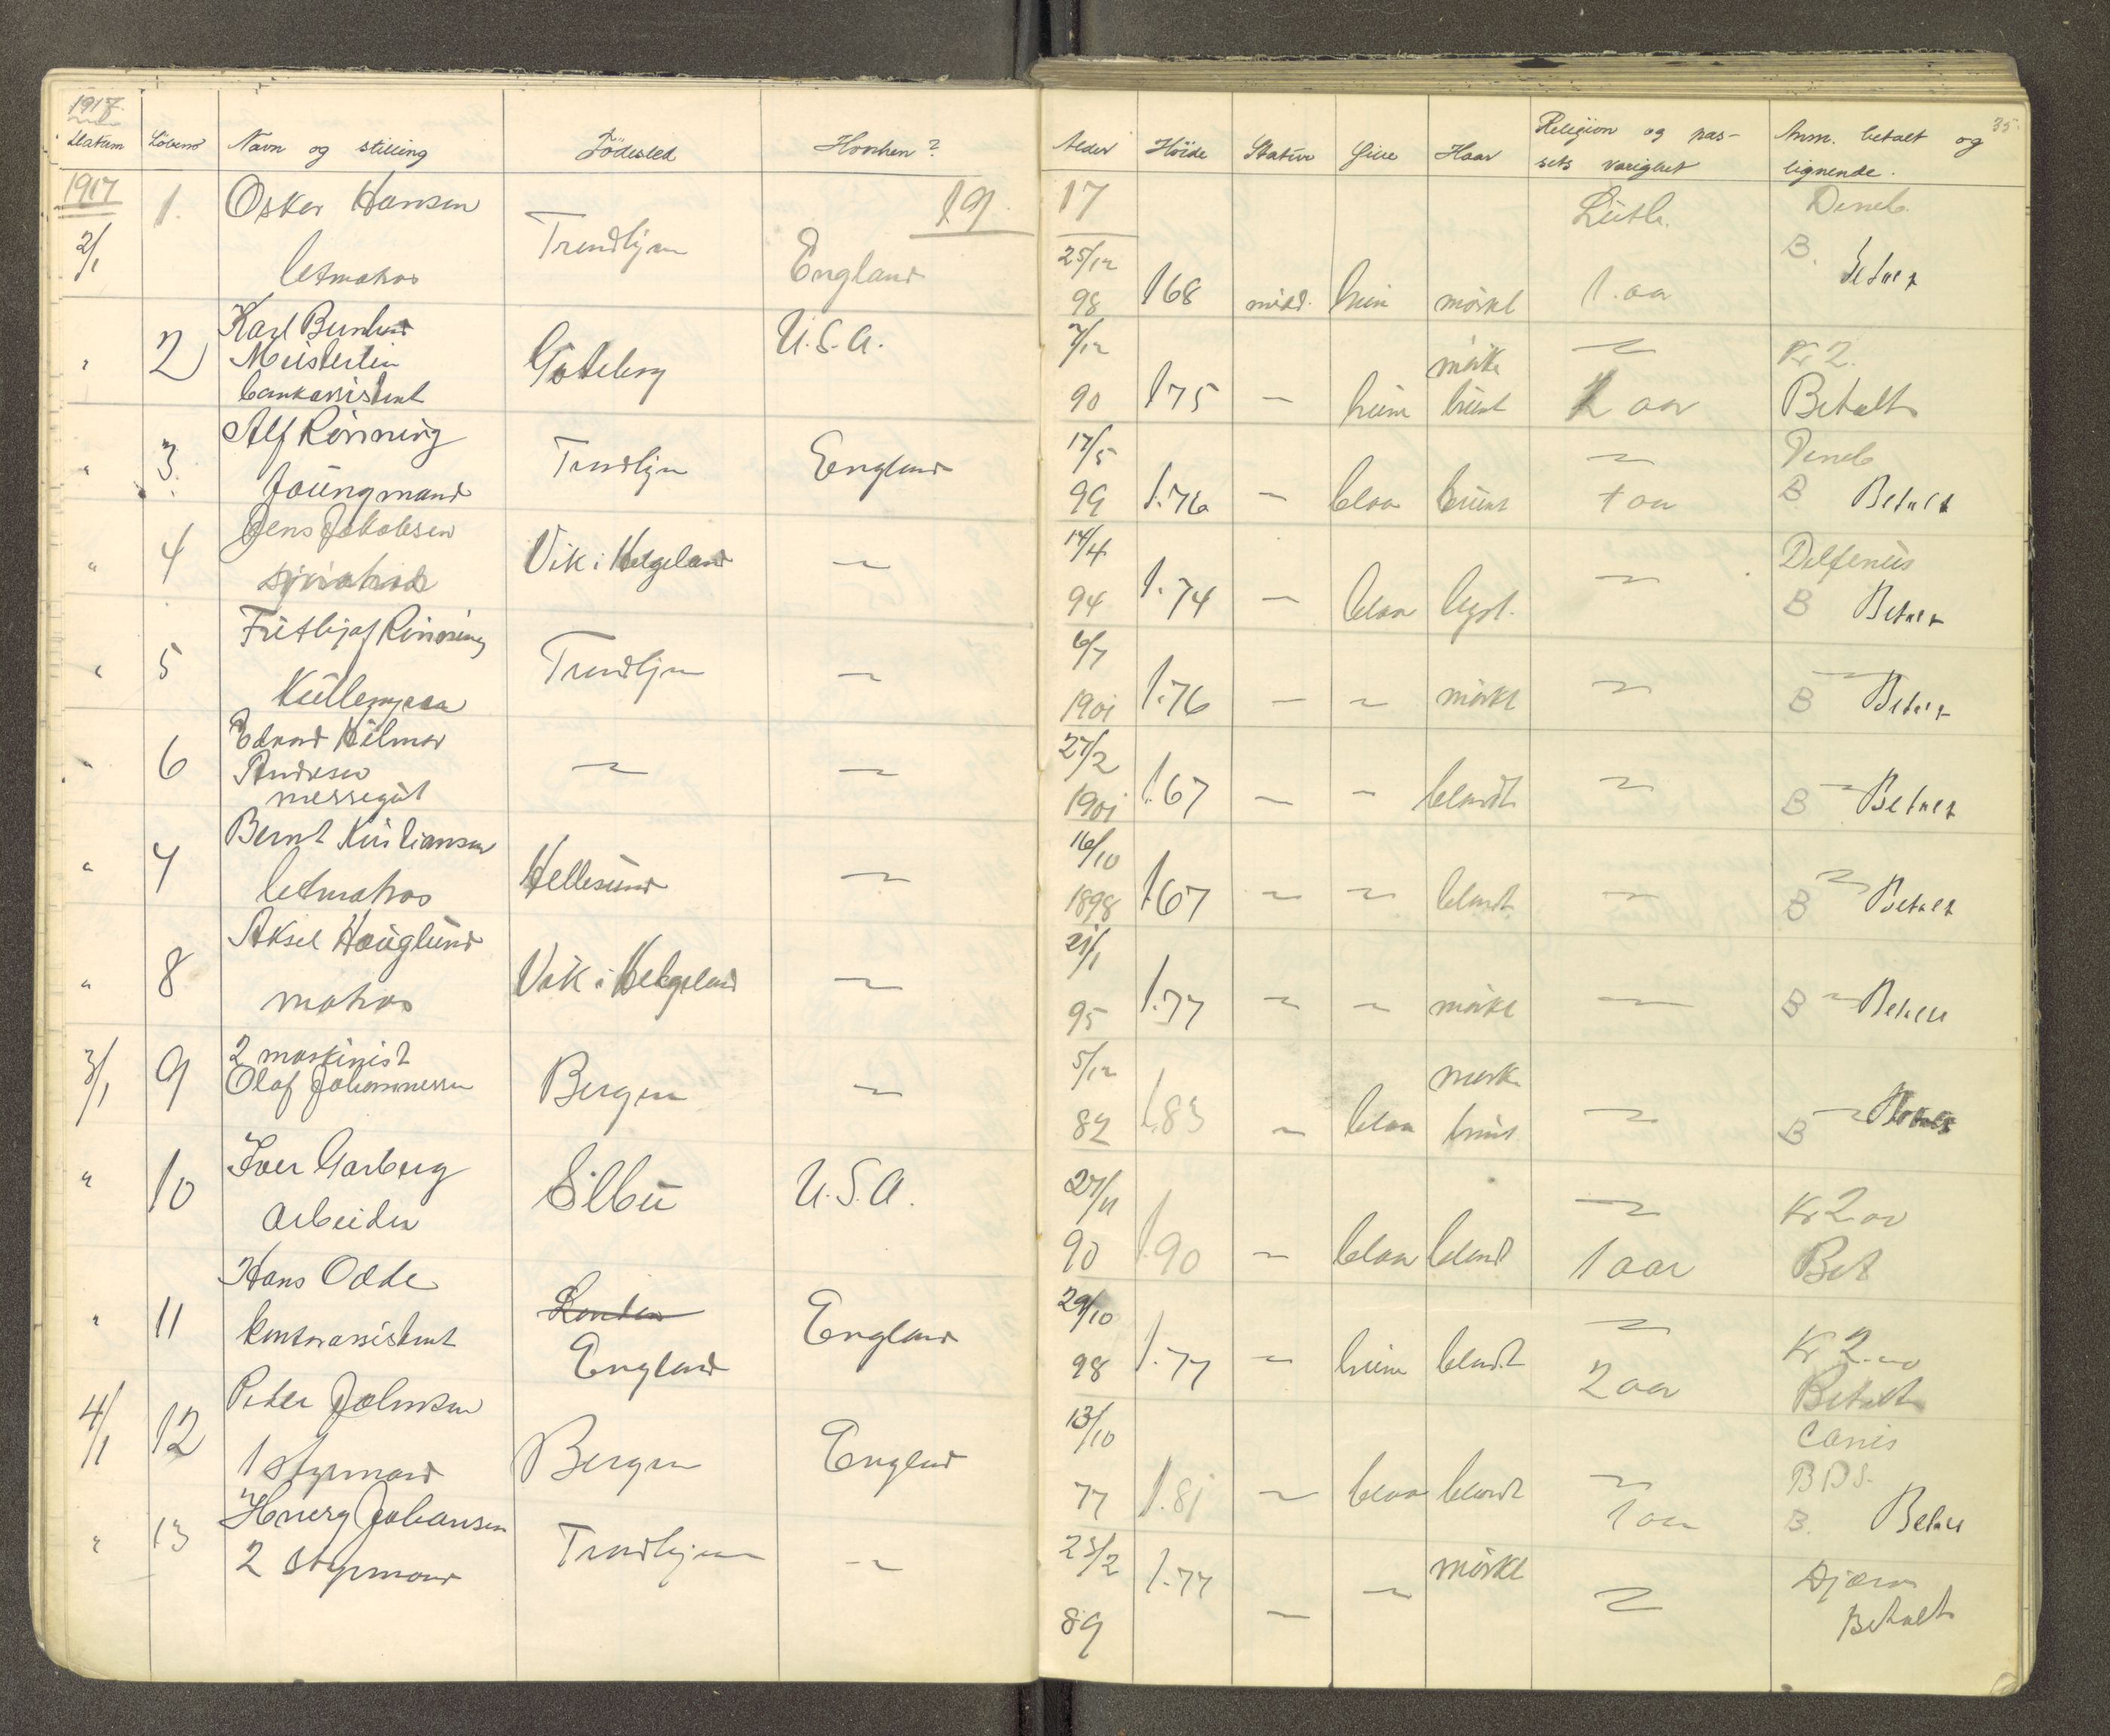 1917.
Datum Löbeno Navn og stilling Födested Hvorhen?
1917 19
1. Oskar Hansen
2/1 Trondhjem England
letmatros
2 Karl Bernhard U.S.A.
" Göteborg
bankassistent
Alf Rönning
" 3. Trondhjem England
Joüngmand
Jens Jakobsen
" 4 Vik i Helgeland —
Frithjof Rönning
" 5 Trondhjem —
Edvard Hilmar
" 6 — —
Andresen
messegüt
Bernt Kristiansen
" 7 Hellesund —
letmatros
Aksel Hoüglünd
" 8 Vik i Helgeland —
matros
3/1 9 2 maskinist Bergen —
Olaf Johannessen
" 10 Iver Garberg Selbü U.S.A.
Arbeider
Hans Odde London
" 11 England
kontorassistent England
4/1 12 Peter Johnsen
Bergen England
1 styrmand
" 13 Johansen Trondhjem —
2 styrmand
35.
Alder Höide Statur Öine Haar Religion og pas-
sets varighet Anm. betalt og
lignende.
17 Lüth. Deneb.
25/12 B. Betalt
98 168 midd. brün mörkt 1. aar
7/12 mörke — Kr 2.
90 175 — brüne brünt 2 aar Betalt
17/5 — Deneb
99 1.76 — blaa brünt 1 aar B Betalt
14/4 Delfinüs
94 1.74 — blaa lyst. — B Betalt
6/7
1901 1.76 — — mörkt — B — Betalt
27/2
1901 1.67 — — blondt — B — Betalt
16/10
1898 1.67 — — blondt — B — Betalt
21/1
95 1.77 — — mörkt — B — Betalt
5/12 mörke
82 1.83 — blaa brünt — B — Betalt
27/11 — Kr 2.00
90 1.90 — blaa blond 1 aar Bet
29/10 — Kr 2.00
98 1.77 — brüne blondt 2 aar Betalt
13/10 Canis
77 1.81 — blaa blondt — BDS.
1 aar B. Betalt
25/2 1.77 mörkt
89 — — — Betalt